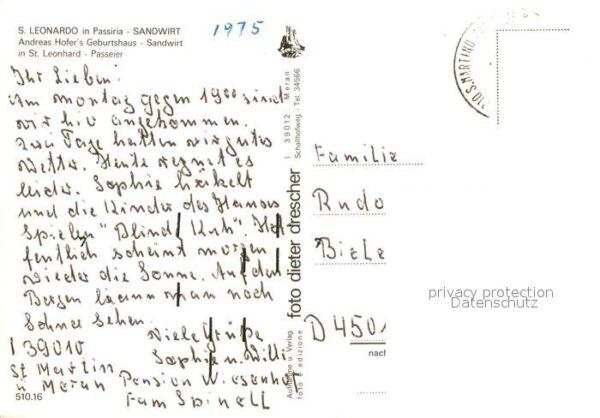 S. LEONARDO in Passiria - SANDWIRT
Andreas Hofer's Geburtshaus - Sandwirt
in St. Leonhard - Passeier
1975
Ihr Lieben!
Am montag gegen 1900 sind
wir hier angekommen.
Zwei Tage hatten wir gutes
Wetter. Heute regnet es
leider. Sophie häkelt
und die Kinder des Hauses
spielen "Blinde Kuh". Hof
fentlich scheint morgen
wieder die Sonne. Auf den
Bergen kann man noch
Schnee sehen.
Viele Grüße
Sophie u. Willi
I 39010
St Martin
ü Meran Pension Wiesenhof
Fam Spinell
510.16
foto dieter drescher
I 39012 Meran
Schallhofweg - Tel. 34566
Aufnahme u. Verlag
foto e edizione
39010 S. MARTINO
Familie
Rudo
Biele
D 4501
nach
privacy protection
Datenschutz